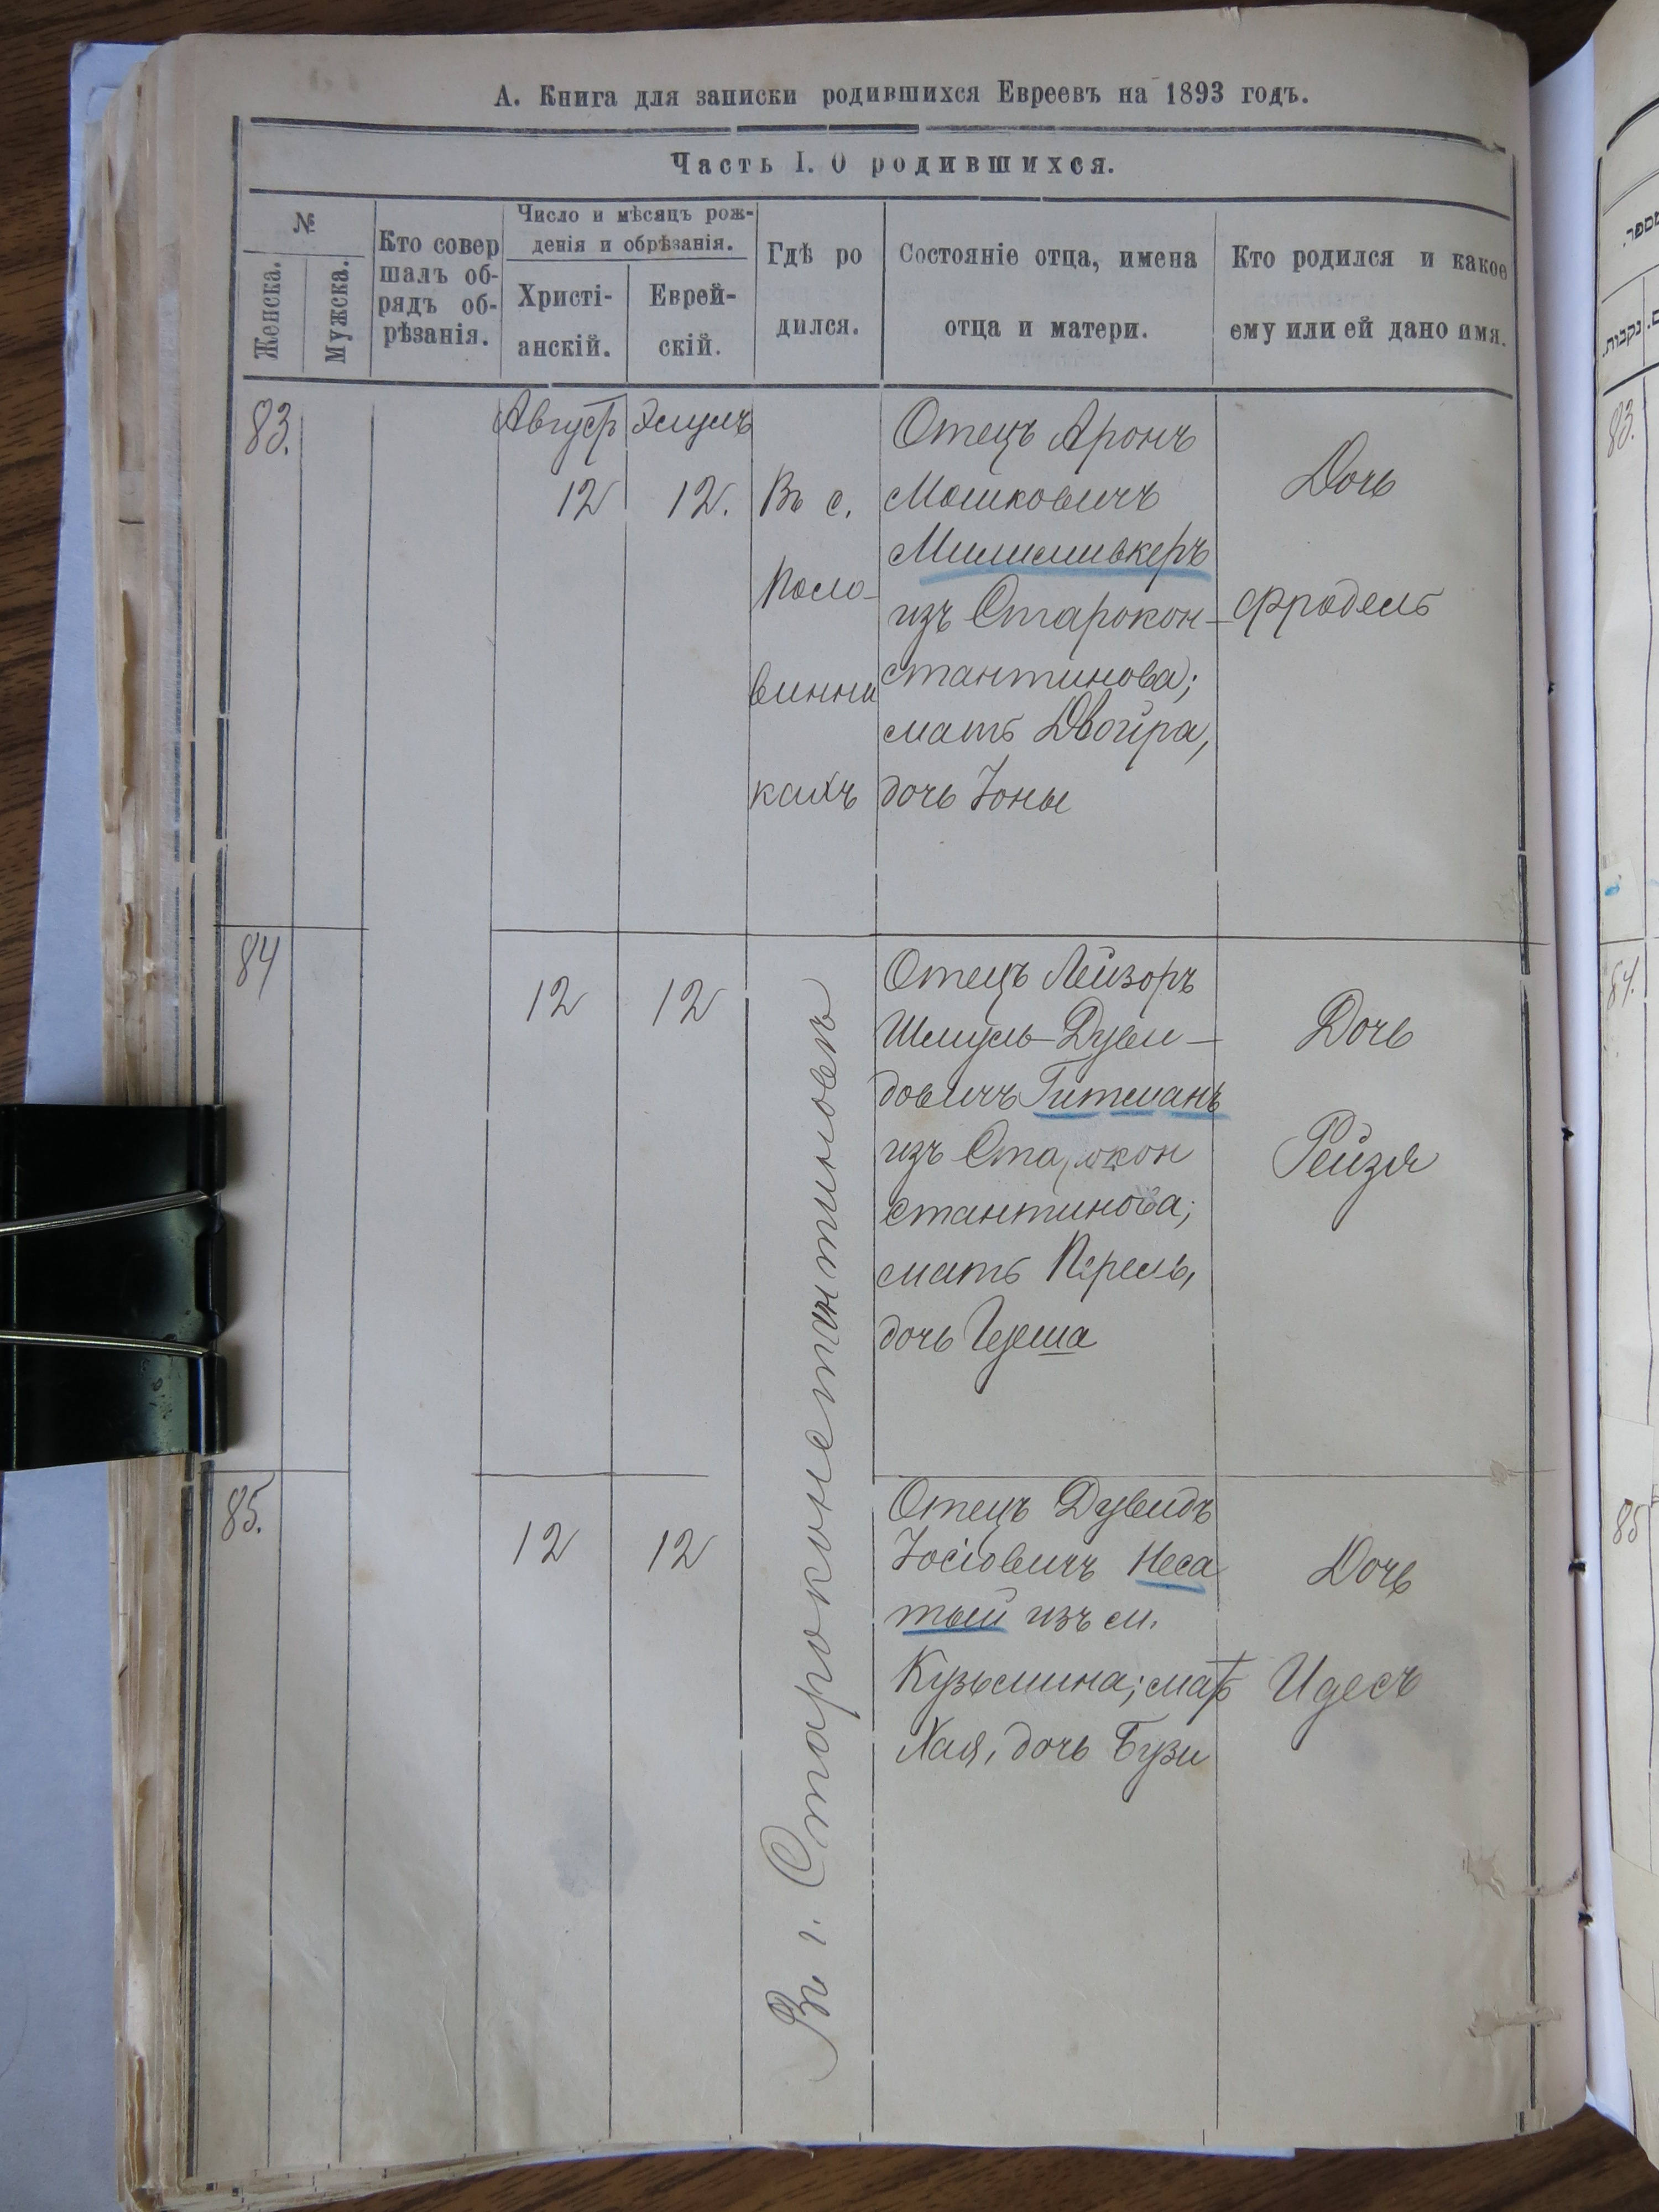 А. Книга для записки родившихся Евреевъ на 1893 годъ.
Часть I. О родившихся.
№
Женска.
Мужска.
Кто совер
шалъ об-
рядъ об-
рѣзанія.
Число и мѣсяцъ рож-
денія и обрѣзанія.
Христі-
анскій.
Еврей-
скій.
Гдѣ ро
дился.
Состояніе отца, имена
отца и матери.
Кто родился и какое
ему или ей дано имя.
83.
Август
12
Элулъ
12.
Въ с.
Поло-
винни
кахъ
Отецъ Аронъ
Мошковичъ
из Старокон-
стантинова;
мать Двойра,
дочь Іоны
Дочь
Фрадель
84
12
12
Въ г. Староконстантиновѣ
Отецъ Лейзоръ
Шмуль-Дуви-
довичъ Гитманъ
изъ Старокон
стантинова;
мать Перель,
дочь
Дочь
Рейзя
85.
12
12
Отецъ Дувидъ
Іосіовичъ Неса
тый изъ м.
Кузьмина; мать
Хая, дочь Бузи
Дочь
Идесъ
מספר.
נקבות.
83.
84.
85